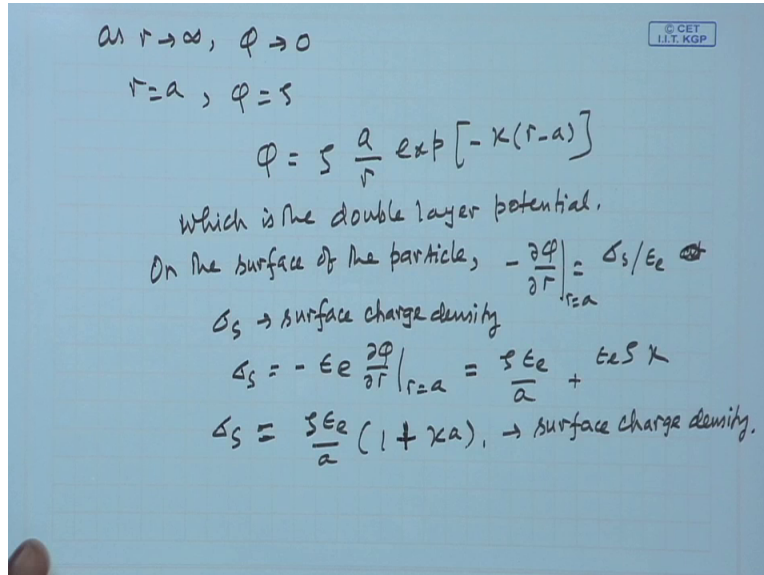 as r→∞, φ→0
© CET
I.I.T. KGP
r=a, φ=ζ
φ = ζ a/r exp[-κ(r-a)]
which is the double layer potential.
On the surface of the particle, -∂φ/∂r|r=a = σs/εe
σs → surface charge density
σs = -εe ∂φ/∂r|r=a = ζεe/a + εeζκ
σs = ζεe/a (1+κa), → surface charge density.